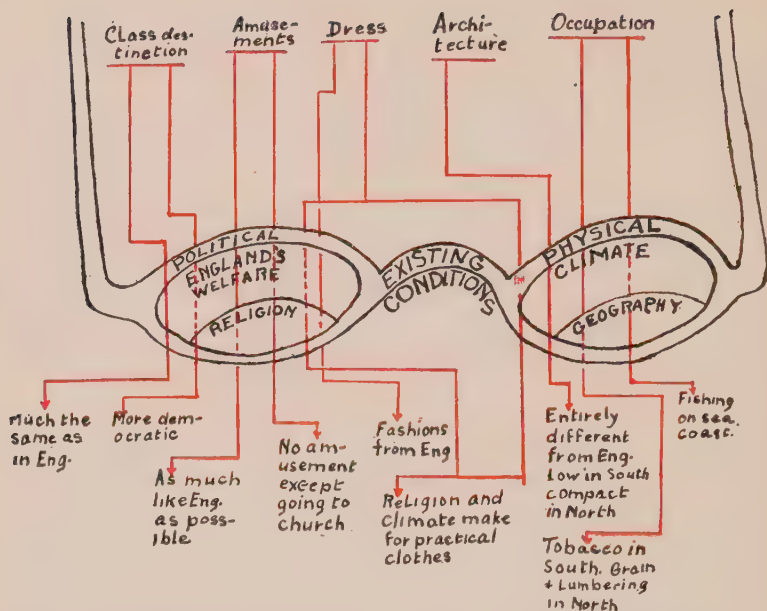 Class des-
tination
Amuse-
ments
Dress
Archi-
tecture
Occupation
POLITICAL
ENGLAND'S
WELFARE
RELIGION
EXISTING
CONDITIONS
PHYSICAL
CLIMATE
GEOGRAPHY
Much the
same as
in Eng.
More dem-
ocratic
As much
like Eng.
as poss-
ible
No am-
usement
except
going to
church
Fashions
from Eng
Religion and
climate make
for practical
clothes
Entirely
different
from Eng.
low in South
compact
in North
Tobacco in
South. Grain
+ Lumbering
in North
Fishing
on sea
coast.